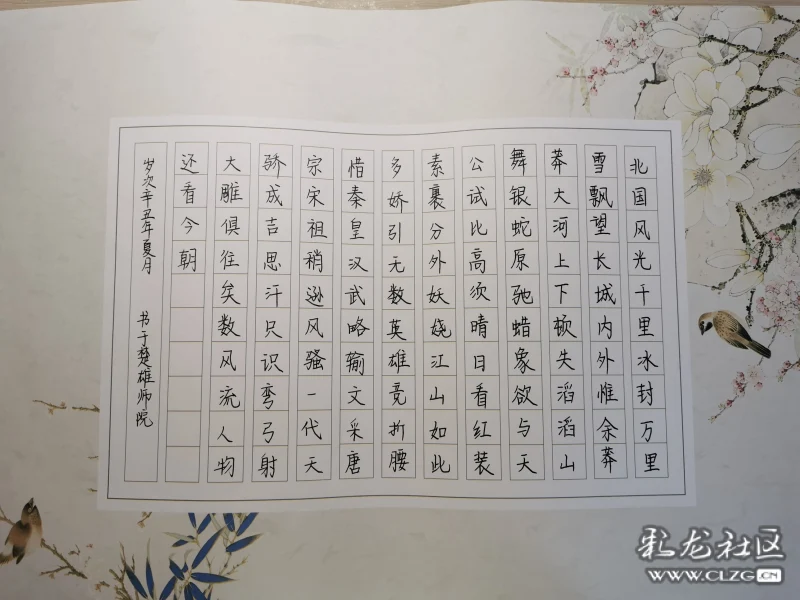 北国风光千里冰封万里
雪飘望长城内外惟余莽
莽大河上下顿失滔滔山
舞银蛇原驰蜡象欲与天
公试比高须晴日看红装
素裹分外妖娆江山如此
多娇引无数英雄竞折腰
惜秦皇汉武略输文采唐
宗宋祖稍逊风骚一代天
骄成吉思汗只识弯弓射
大雕俱往矣数风流人物
还看今朝
岁次辛丑年夏月 书于楚雄师院
彩龙社区
WWW.CLZG.CN